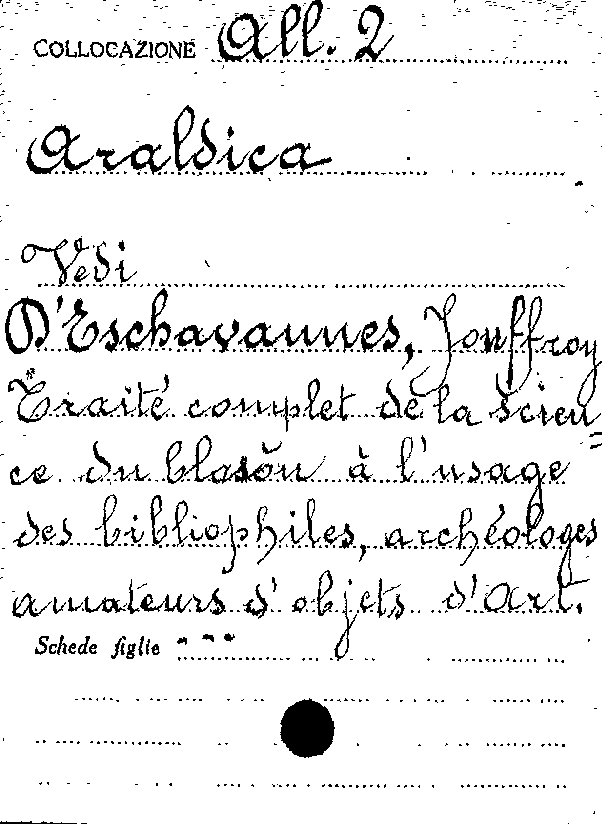 COLLOCAZIONE All. 2
Araldica
Vedi
D'Eschavannes, Jouffroy
Traité complet de la scien=
ce du blason à l'usage
des bibliophiles, archéologes
amateurs d'objets d'Art.
Schede figlie